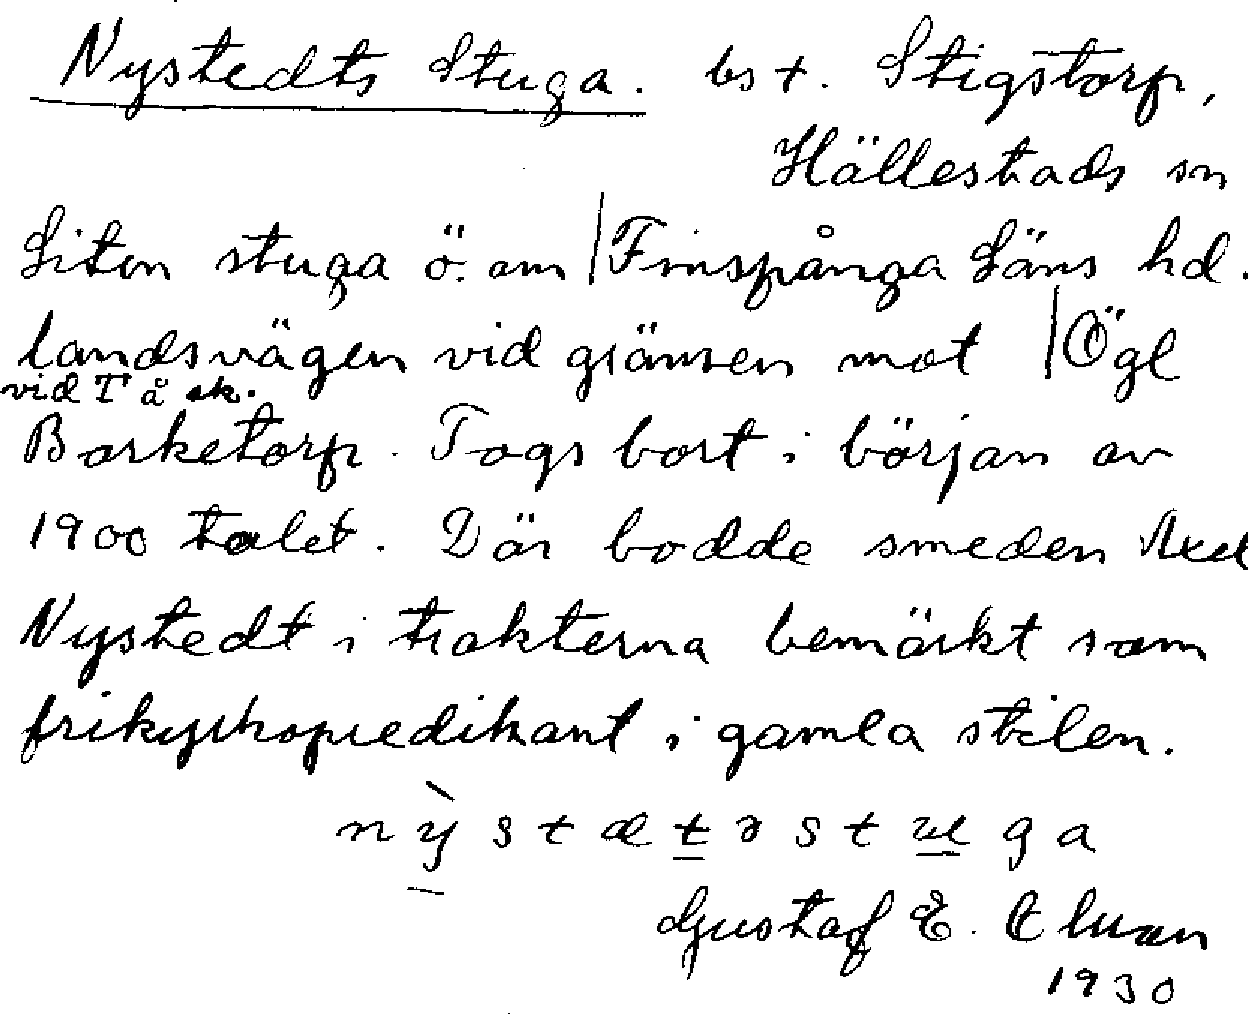 Nystedts Stuga. bst. Stigstorp,
Hällestads sn
Liten stuga ö. om | Finspånga Läns hd.
landsvägen vid gränsen mot | Ögl
vid T å sk.
Borketorp. Togs bort i början av
1900 talet. Där bodde smeden Axel
Nystedt i trakterna bemärkt som
frikyrkopredikant i gamla stilen.
nỳstætəstuga
Gustaf E.
1930